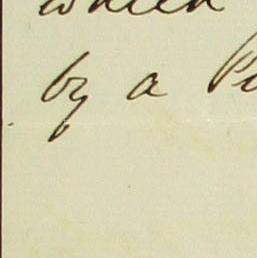 which
by a